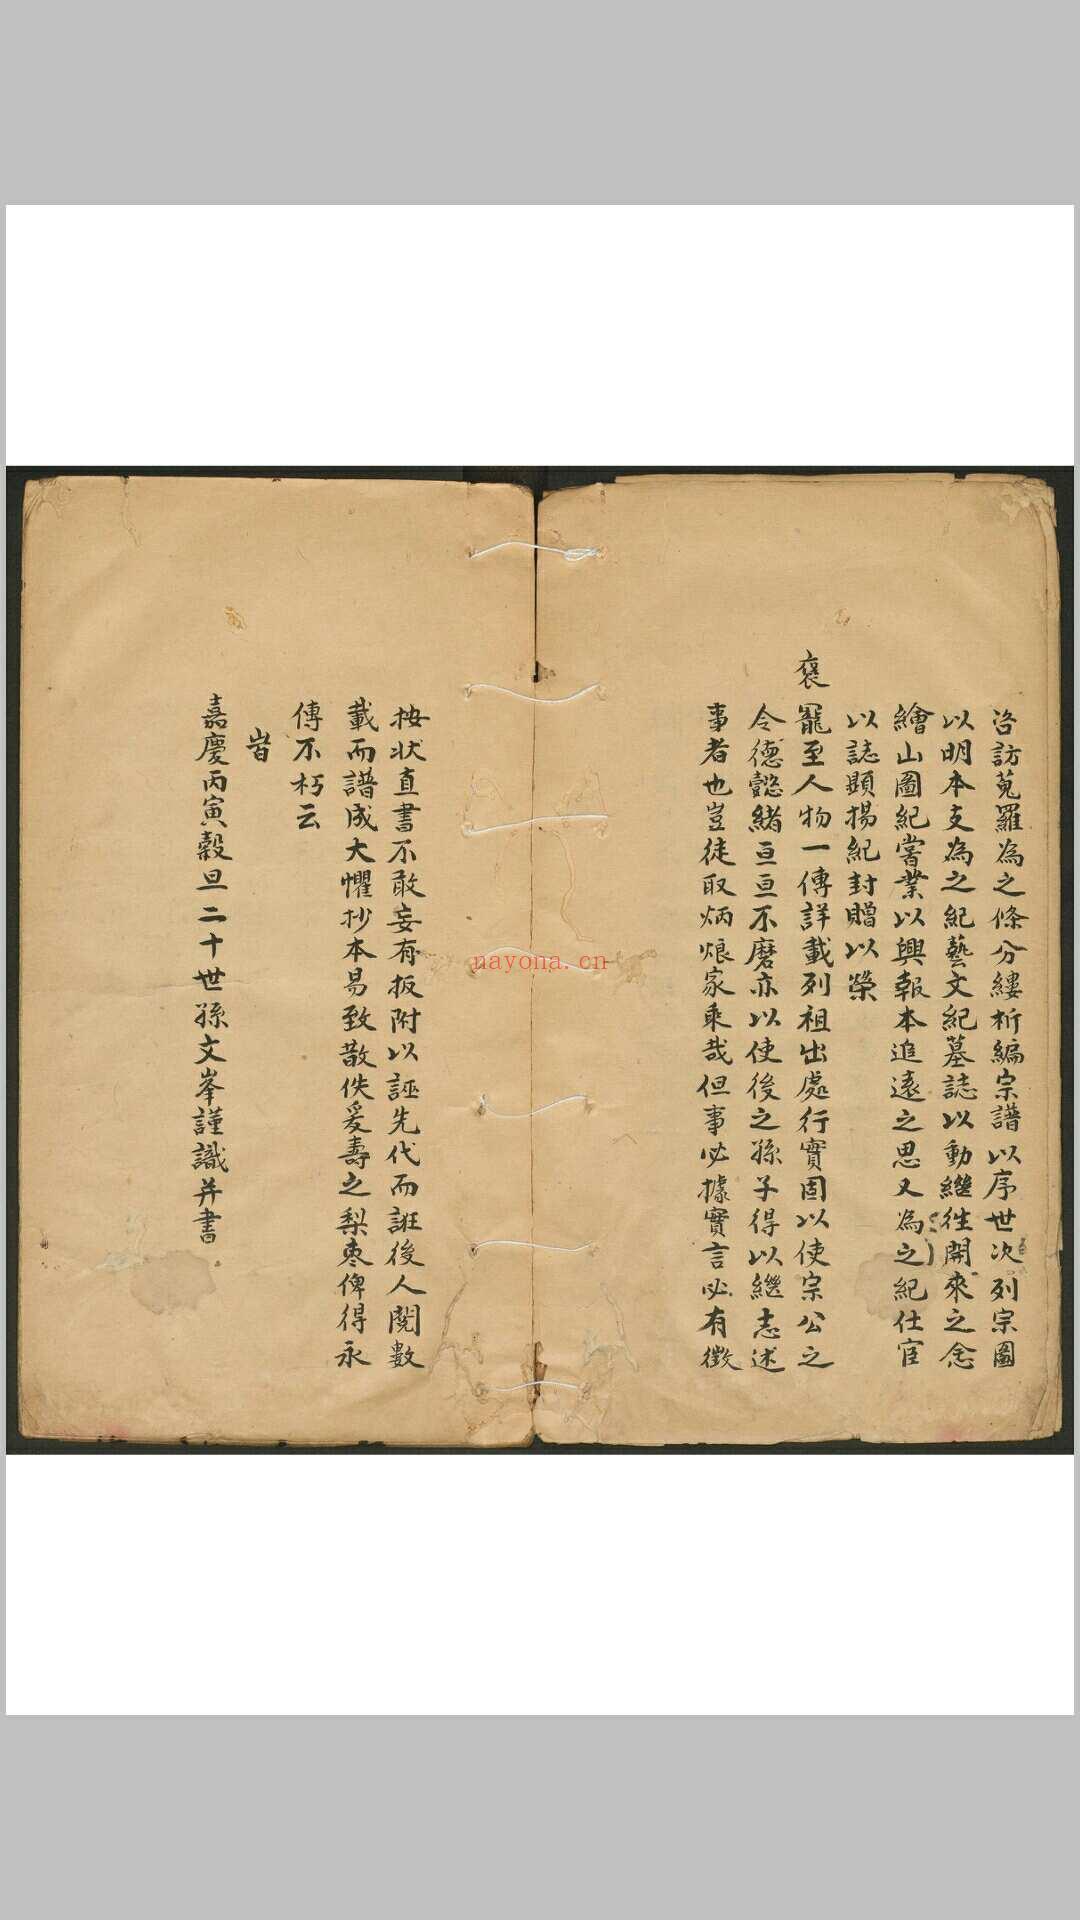 咨訪蒐羅為之條分縷析編宗譜以序世次列宗圖
以明本支為之紀藝文紀墓誌以動繼往開來之念
繪山圖紀嘗業以興報本追遠之思又為之紀仕宦
以誌顯揚紀封贈以榮
褒
寵至人物一傳詳載列祖出處行實固以使宗公之
令德懿緒亘亘不磨亦以使後之孫子得以繼志述
事者也豈徒取炳烺家乘哉但事必據實言必有徵
按狀直書不敢妄有扳附以誣先代而誑後人閱數
載而譜成大懼抄本易致散佚爰壽之梨枣俾得永
傳不朽云
旹
嘉慶丙寅穀旦二十世孫文峯謹識并書
nayona.cn